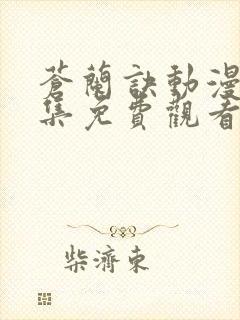 蒼蘭訣動漫
集免費觀看
柴濟東